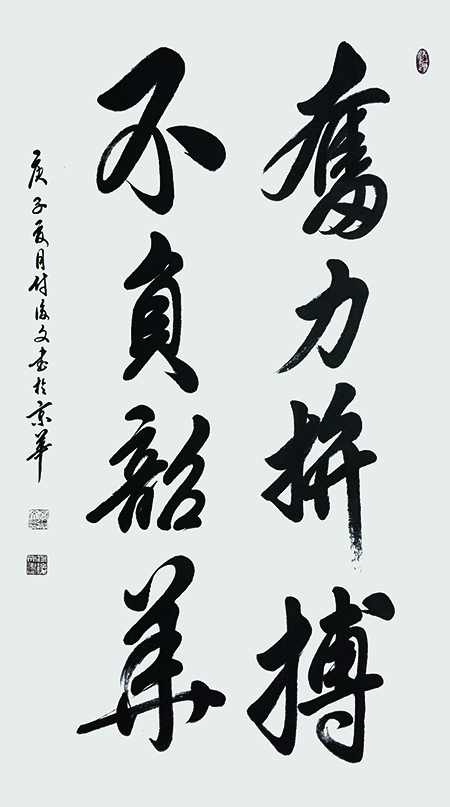 奮力拚搏
不負韶華
庚子夏月付後文书於京華